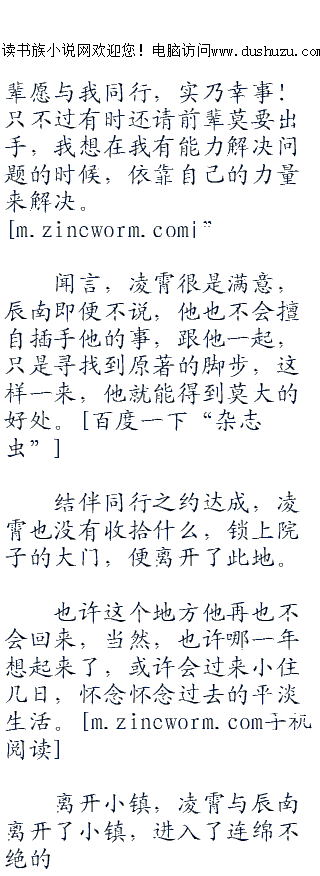 读书族小说网欢迎您！电脑访问www.dushuzu.com
辈愿与我同行，实乃幸事！
只不过有时还请前辈莫要出
手，我想在我有能力解决问
题的时候，依靠自己的力量
来解决。
[m.zincworm.com]”
闻言，凌霄很是满意，
辰南即便不说，他也不会擅
自插手他的事，跟他一起，
只是寻找到原著的脚步，这
样一来，他就能得到莫大的
好处。[百度一下“杂志
虫”]
结伴同行之约达成，凌
霄也没有收拾什么，锁上院
子的大门，便离开了此地。
也许这个地方他再也不
会回来，当然，也许哪一年
想起来了，或许会过来小住
几日，怀念怀念过去的平淡
生活。[m.zincworm.com手机
阅读]
离开小镇，凌霄与辰南
离开了小镇，进入了连绵不
绝的